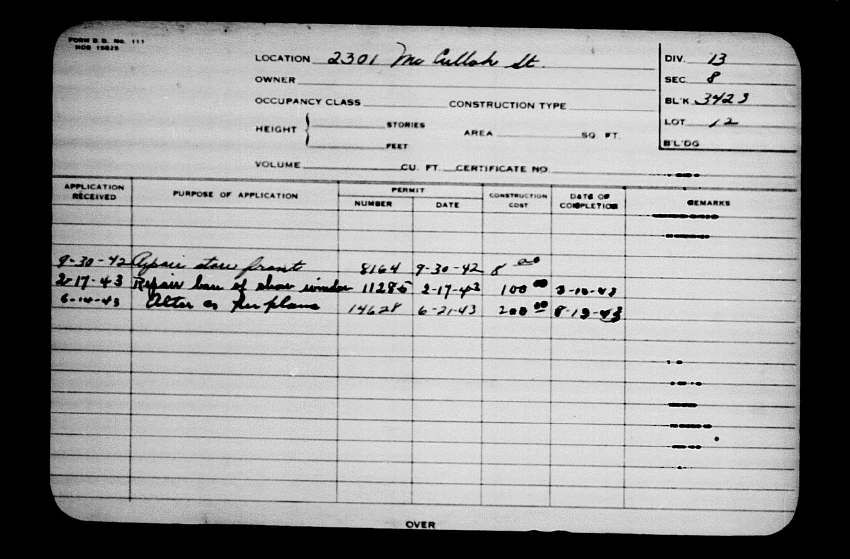 FORM B.B. No. 111
HOB 15629
LOCATION 2301 Mc Culloh St.
DIV. 13
OWNER
SEC. 8
OCCUPANCY CLASS CONSTRUCTION TYPE
BL'K 3423
HEIGHT STORIES FEET AREA SQ. FT.
LOT 12
B'L'DG
VOLUME CU. FT. CERTIFICATE NO.
APPLICATION RECEIVED PURPOSE OF APPLICATION PERMIT NUMBER DATE CONSTRUCTION COST DATE OF COMPLETION REMARKS
9-30-42 Repair store front 8164 9-30-42 8 00
2-17-43 Repair base of show window 11285 2-17-43 100 00
6-14-43 Alter as per plans 14628 6-21-43 200 00 8-13-43
OVER